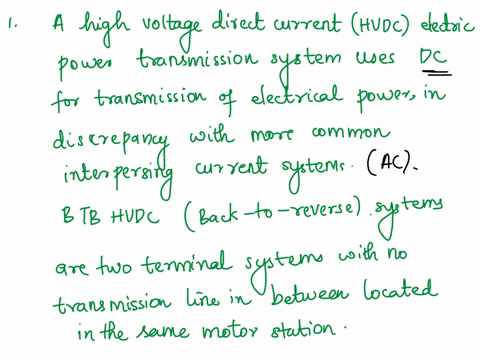 1. A high voltage direct current (HVDC) electric
power transmission system uses DC
for transmission of electrical power, in
discrepancy with more common
interpersing current systems. (AC).
BTB HVDC (Back-to-reverse) systems
are two terminal systems with no
transmission line in between located
in the same motor station.